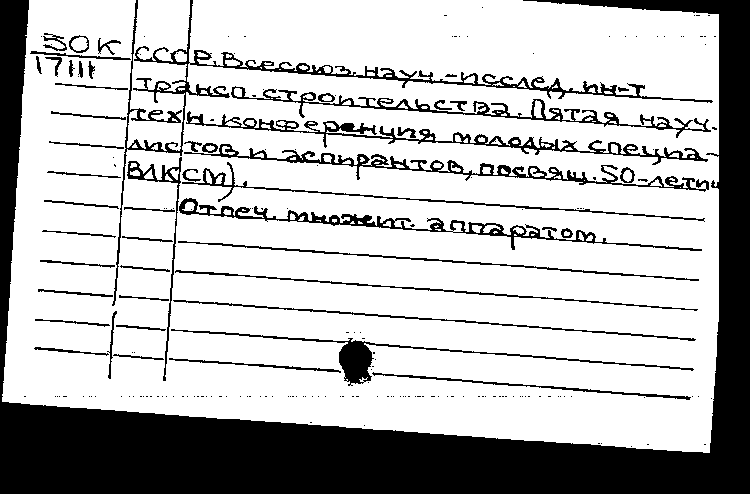 50К СССР. Всесоюз. науч.-исслед. ин-т
17111
трансп. строительства. Пятая науч.
техн. конференция молодых специа-
листов и аспирантов, посвящ. 50-лети
ВЛКСМ).
Отпеч. множит. аппаратом.